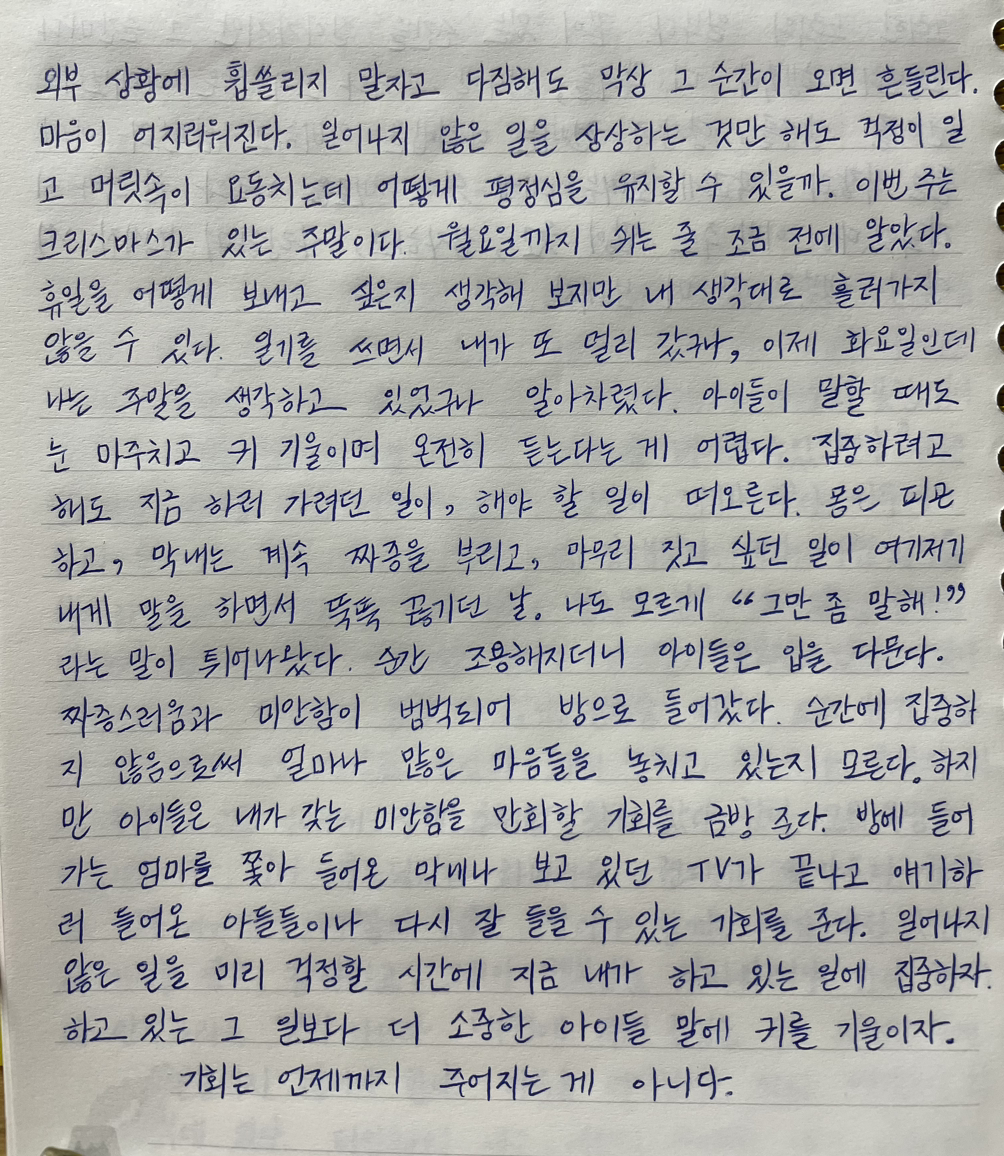 외부 상황에 휩쓸리지 말자고 다짐해도 막상 그 순간이 오면 흔들린다.
마음이 어지러워진다. 일어나지 않은 일을 상상하는 것만 해도 걱정이 일
고 머릿속이 요동치는데 어떻게 평정심을 유지할 수 있을까. 이번 주는
크리스마스가 있는 주말이다. 월요일까지 쉬는 줄 조금 전에 알았다.
휴일을 어떻게 보내고 싶은지 생각해 보지만 내 생각대로 흘러가지
않을 수 있다. 일기를 쓰면서 내가 또 멀리 갔구나, 이제 화요일인데
나는 주말을 생각하고 있었구나 알아차렸다. 아이들이 말할 때도
눈 마주치고 귀 기울이며 온전히 듣는다는 게 어렵다. 집중하려고
해도 지금 하러 가려던 일이, 해야 할 일이 떠오른다. 몸은 피곤
하고, 막내는 계속 짜증을 부리고, 마무리 짓고 싶던 일이 여기저기
내게 말을 하면서 뚝뚝 끊기던 날. 나도 모르게 “그만 좀 말해!”
라는 말이 튀어나왔다. 순간 조용해지더니 아이들은 입을 다문다.
짜증스러움과 미안함이 범벅되어 방으로 들어갔다. 순간에 집중하
지 않음으로써 얼마나 많은 마음들을 놓치고 있는지 모른다. 하지
만 아이들은 내가 갖는 미안함을 만회할 기회를 금방 준다. 방에 들어
가는 엄마를 쫓아 들어온 막내나 보고 있던 TV가 끝나고 얘기하
러 들어온 아들들이나 다시 잘 들을 수 있는 기회를 준다. 일어나지
않은 일을 미리 걱정할 시간에 지금 내가 하고 있는 일에 집중하자.
하고 있는 그 일보다 더 소중한 아이들 말에 귀를 기울이자.
기회는 언제까지 주어지는 게 아니다.